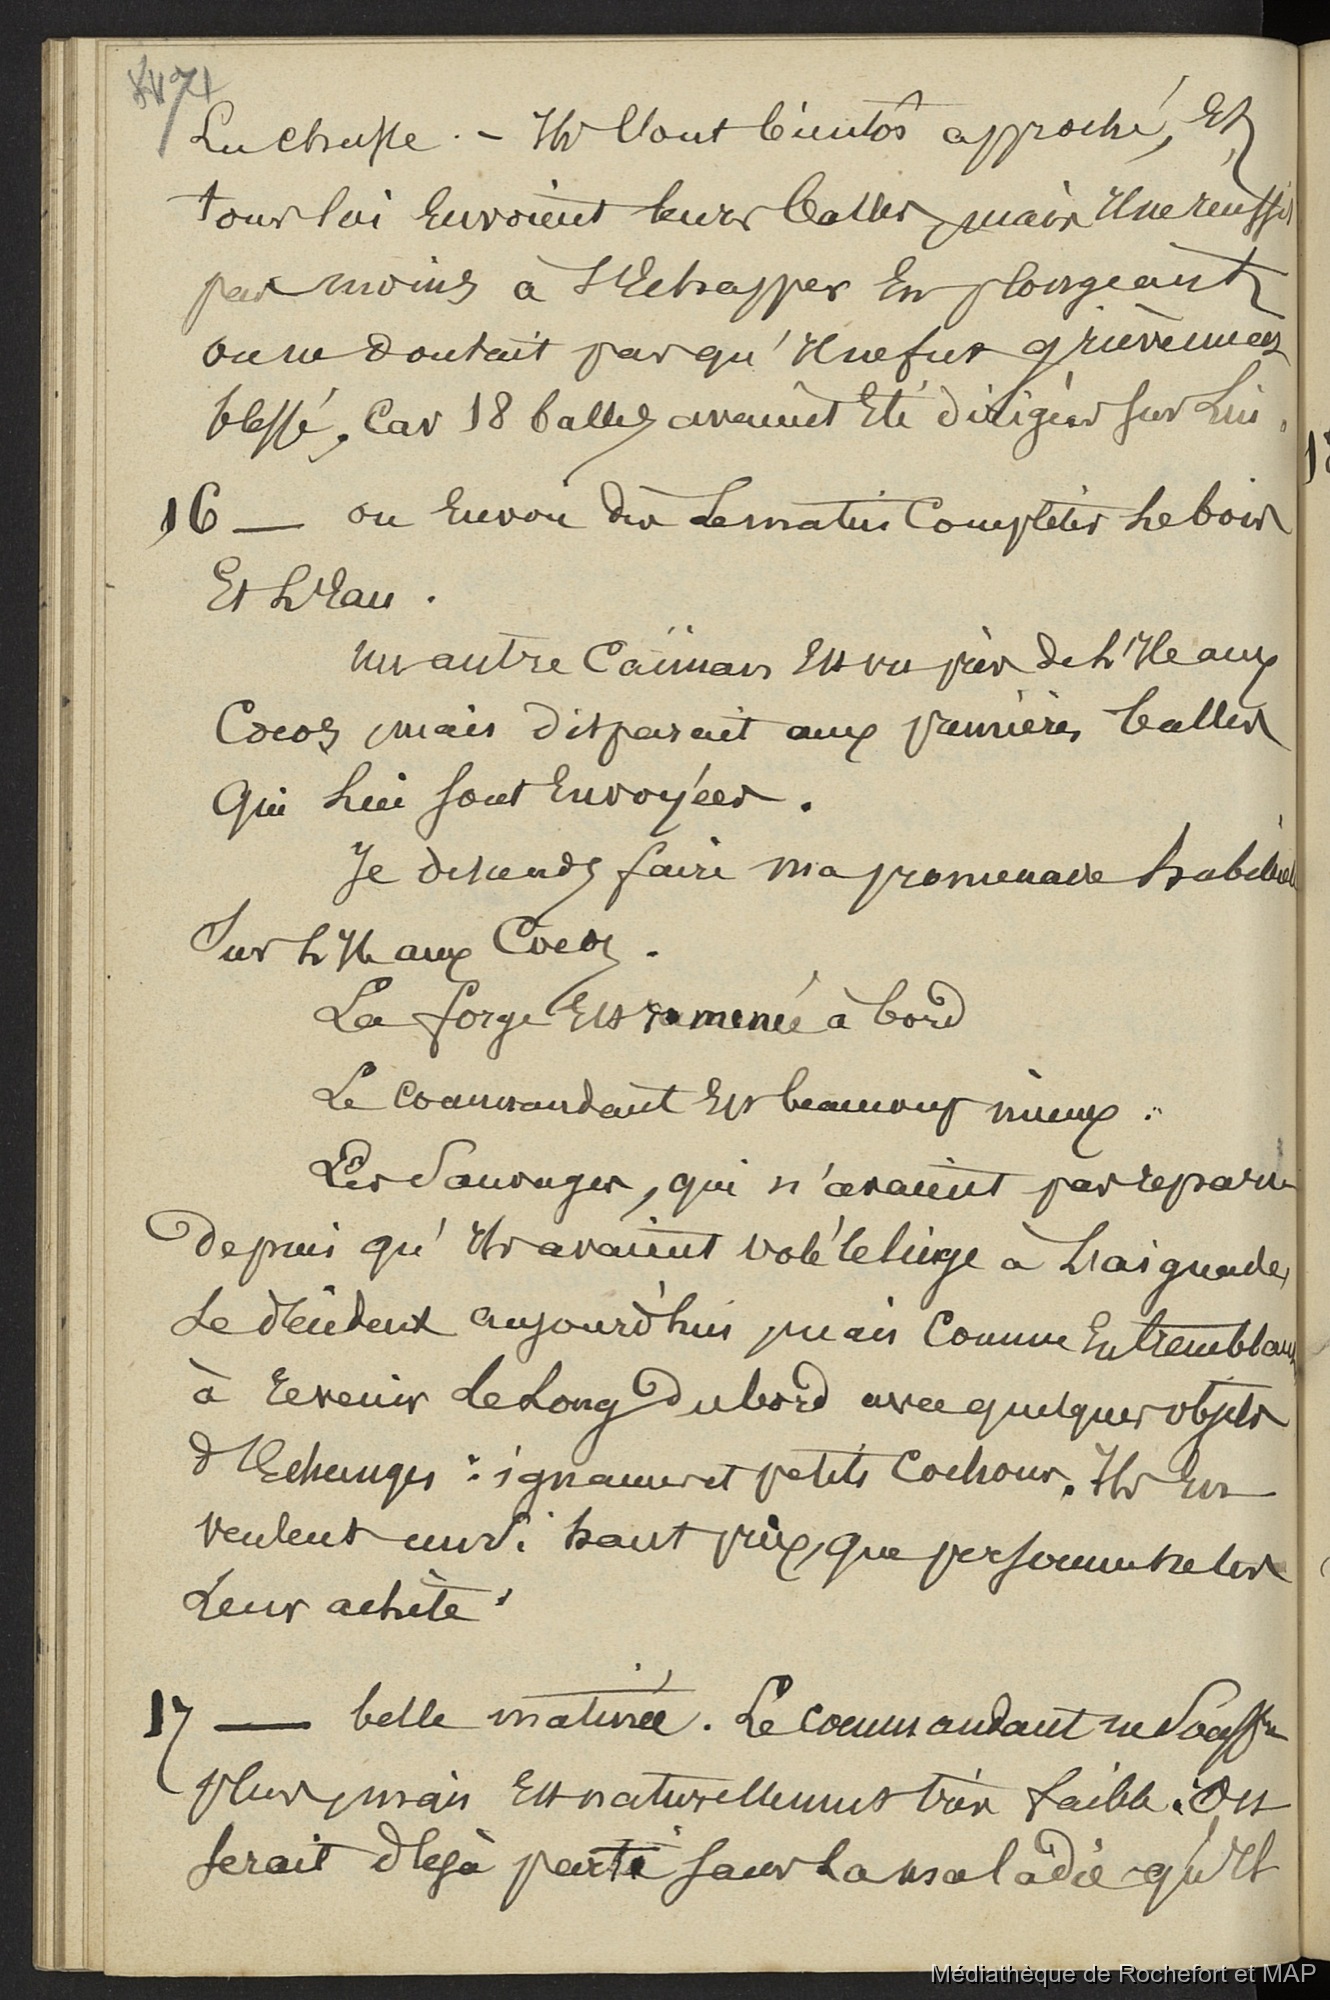 71
La chasse. – Ils l'ont bientôt approché, Et
tous lui Envoient leurs balles, mais Il ne réussit
pas moins à s'Echapper En plongeant
on ne doutait pas qu'Il ne fut grièvement
blessé, Car 18 balles avaient Eté dirigées sur Lui.
16 — on Envoi dès Le matin Compléter Le bois
Et L'Eau.
un autre Caïman Est vu près de L'Ile aux
Cocos, mais disparait aux premières balles
Qui Lui sont Envoyées.
Je descends faire ma promenade habituelle
Sur L'Ile aux Cocos.
La forge Est ramenée à bord
Le commandant Est beaucoup mieux.
Les Sauvages, qui n'avaient pas reparu
Depuis qu'Ils avaient volé le linge à L'aiguade,
Se décident aujourd'hui, mais Comme En tremblant
à revenir Le Long Du bord avec quelques objets
d'Echanges : ignames et petits Cochons. Ils En
veulent un si haut prix, que personne ne les
Leur achète.
17 — belle matinée. Le commandant ne Souffre
plus, mais Est naturellement très faible. On
serait déjà parti sans La maladie qu'Il
Médiathèque de Rochefort et MAP